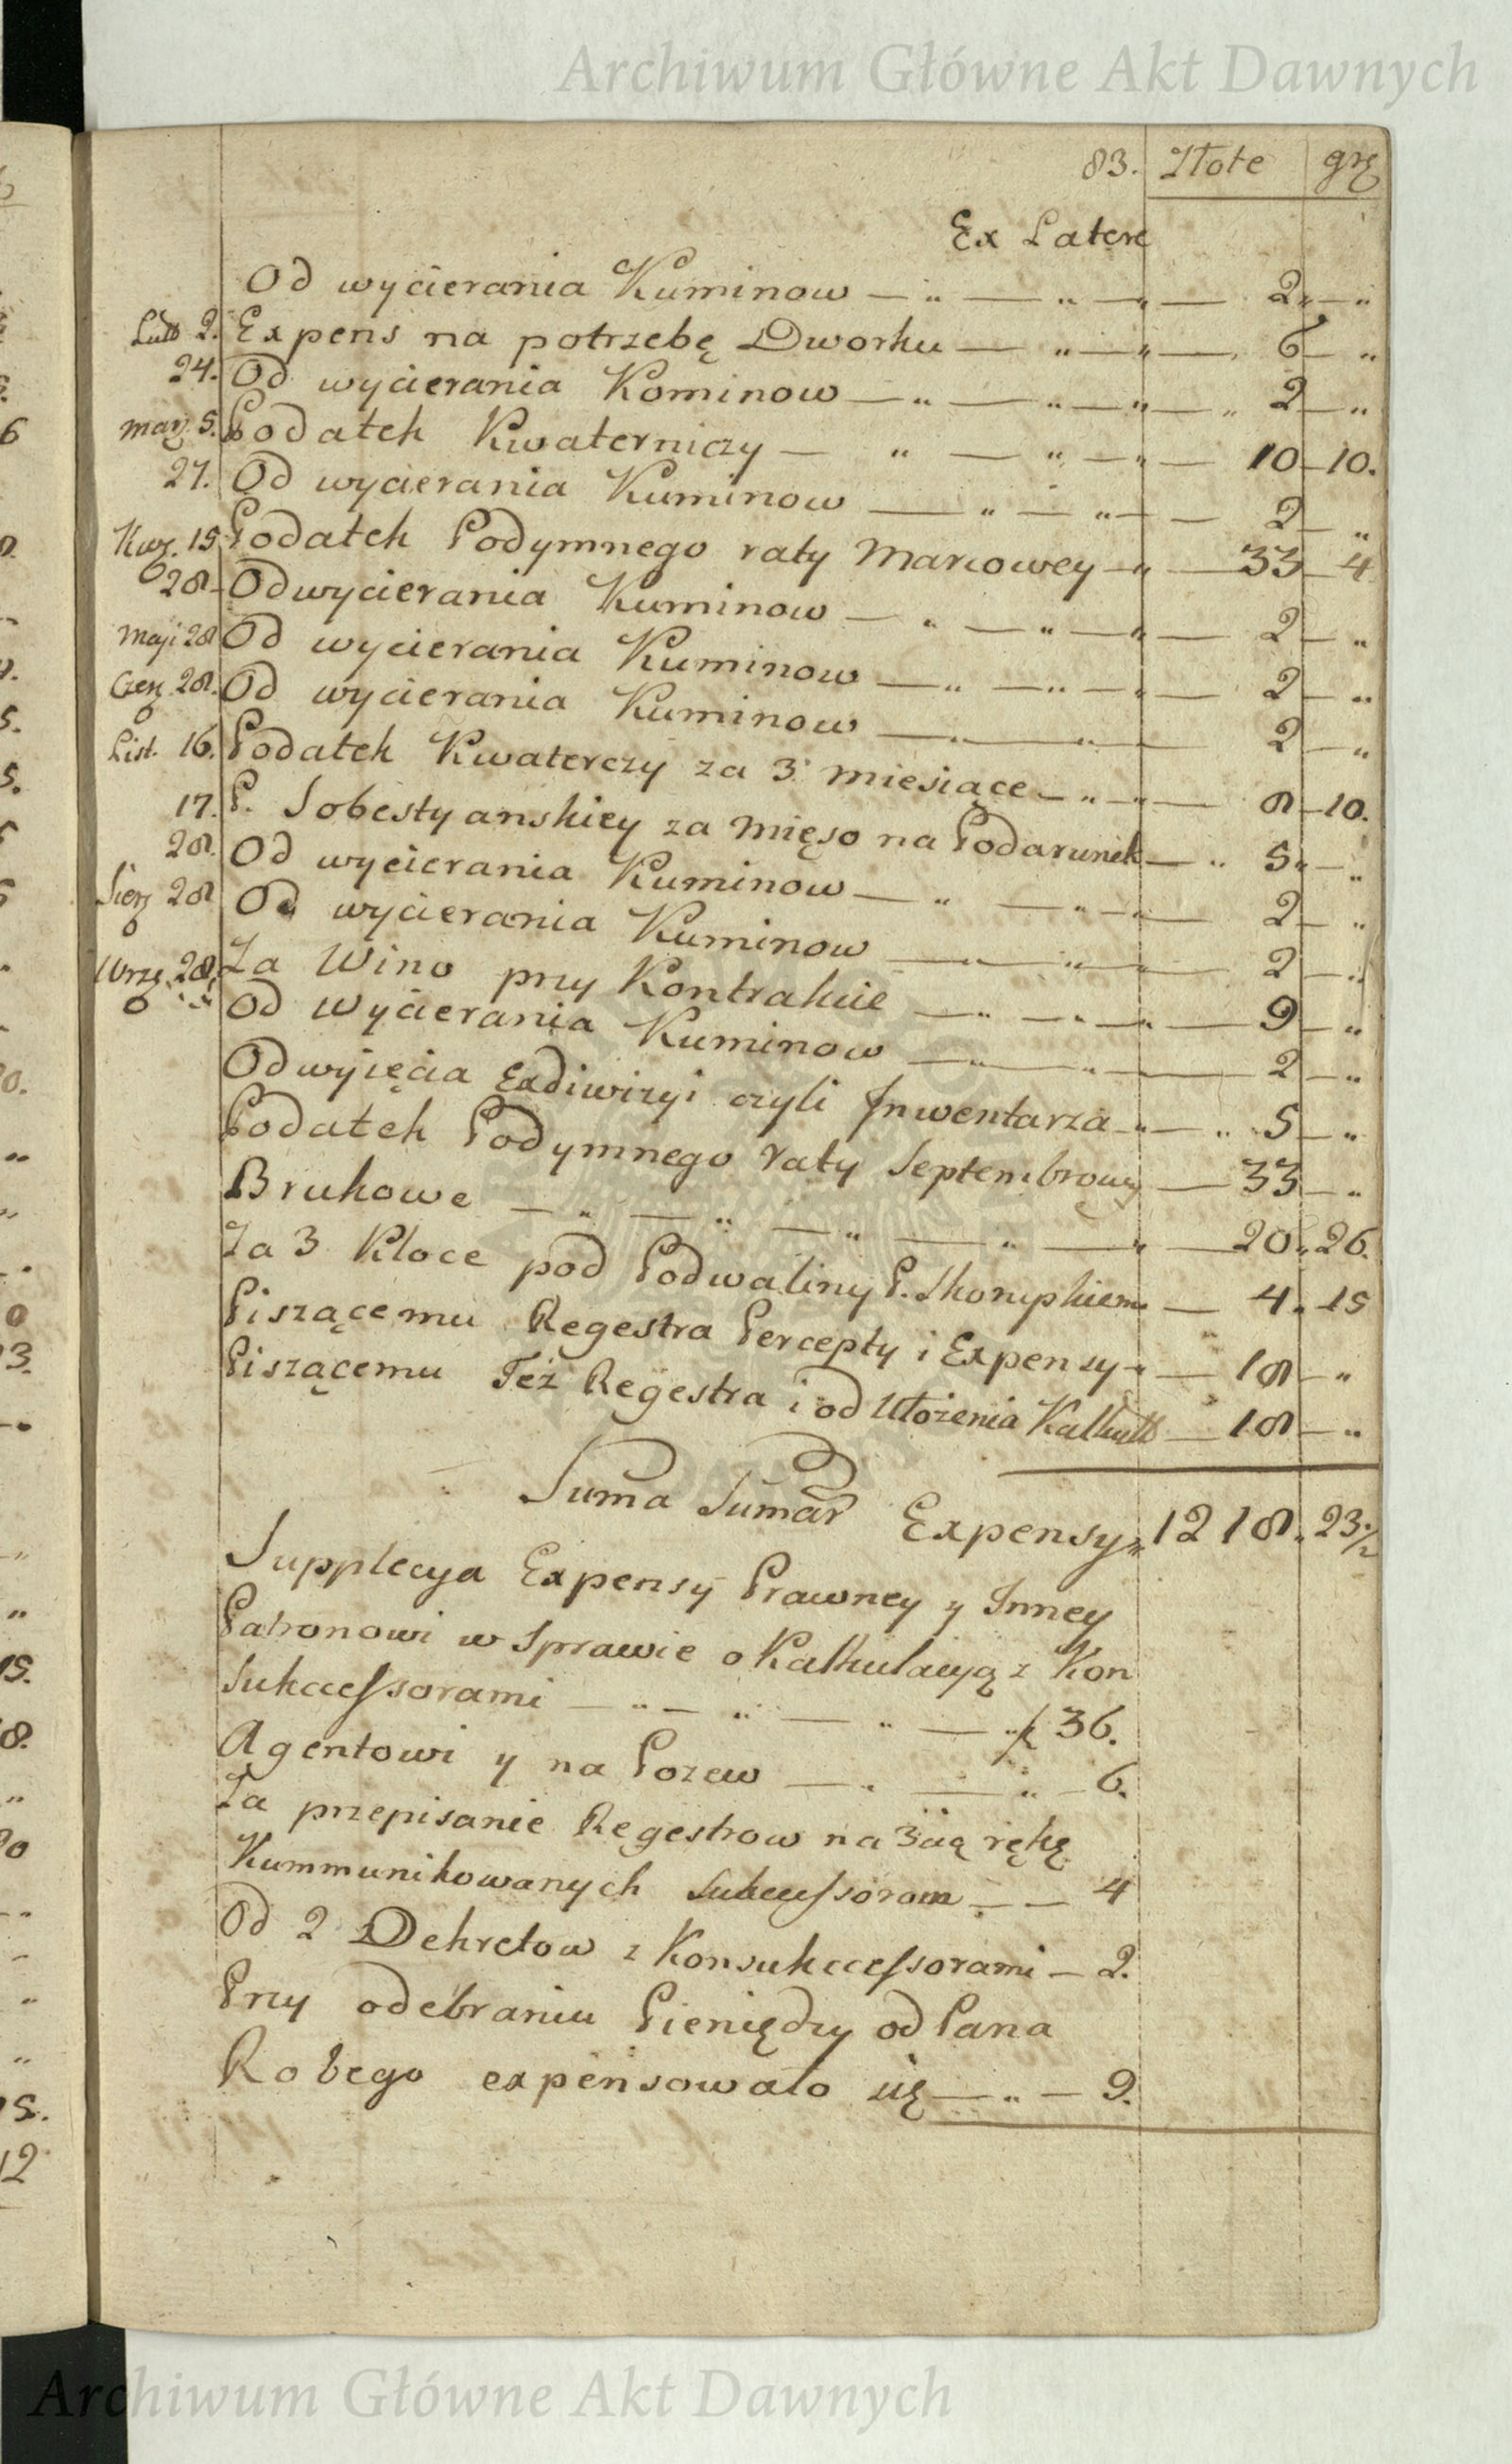 Archiwum Główne Akt Dawnych
83. Złote grz
Ex Latere
Od wycierania Kuminow — „ — „ — „ — 2 „ — „
Lut 2. Expens na potrzebę Dworku — „ — „ — 6 — „
24. Od wycierania Kominow — „ — „ — „ — „ 2 — „
Marz 5. Podatek Kwaterniczy — „ — „ — „ — 10 — 10.
27. Od wycierania Kuminow — „ — „ — — 2 — „
Kwz. 15 Podatek Podymnego raty Marcowey — „ — 33 — 4
28 — Od wycierania Kuminow — „ — „ — „ — 2 — „
Maji 28 Od wycierania Kuminow — „ — „ — „ — 2 — „
Czerz 28. Od wycierania Kuminow — „ — „ — 2 — „
List. 16. Podatek Kwaterczy za 3 miesiące — „ — „ — 8 — 10.
17. P. Sobestyanskiey za mięso na Podarunek — „ 5 „ — „
28. Od wycierania Kuminow — „ — „ — „ — 2 — „
Sierz 28 Od wycierania Kuminow — „ — „ — 2 — „
Wrze. 28. Za Wino przy Kontrakcie — „ — „ — „ — 9 — „
Od Wycierania Kuminow — „ — „ — 2 — „
Od wyięcia Exdiwizyi czyli Inwentarza — „ — „ 5 — „
Podatek Podymnego raty Septembrowey — 33 — „
Brukowe — „ — „ — „ — „ — „ — 20 „ 26.
Za 3 Kloce pod Podwaliny P. — 4 „ 15
Piszącemu Regestra Percepty i Expensy — „ — 18 — „
Piszącemu Też Regestra i od Ułożenia Kalkull — 18 — „
Suma Sumar Expensy „ 1218 „ 23 ½
Supplecya Expensy Prawney y Inney
Patronowi w Sprawie o Kalkulacyą z Kon
Sukcessorami — „ — „ — „ — „ 36.
Agentowi y na Pozew — „ — „ — 6.
Za przepisanie Regestrow na 3cią rękę
Kummunikowanych Sukcessorom — „ — 4
Od 2 Dekretow z Konsukccessorami — 2.
Przy odebraniu Pieniędzy od Pana
Robego expensowało się — „ — 9.
Archiwum Główne Akt Dawnych